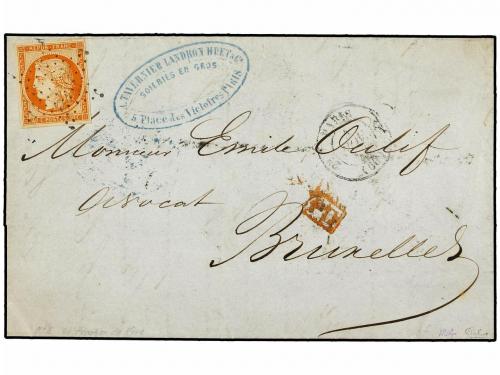 REPUB. FRANC.
TAVERNIER LANDRON HUET & Cie
SOIERIES EN GROS
5, Place des Victoires, PARIS
PARIS
Monsieur Emile Oulif
avocat
Bruxelles